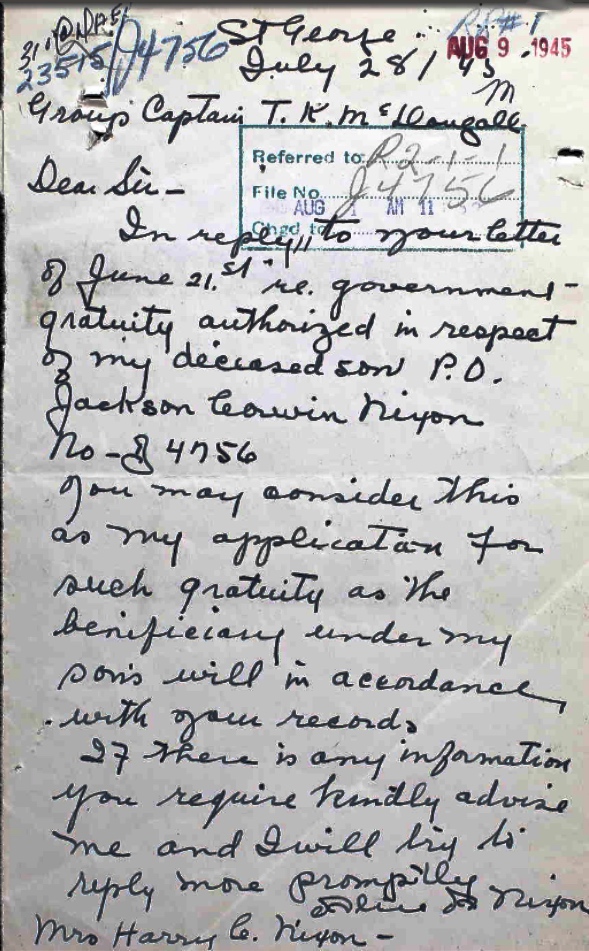 31
23515 J4756 St George RR#1
AUG 9 1945
July 28/45
M
Group Captain T. K. McDougall
Referred to R2-1-1
Dear Sir -
File No. J4756
AUG 1 AM 11
Chgd to
In reply to your letter
of June 21.st re. government
gratuity authorized in respect
of my deceased son P.O.
Jackson Corwin Nixon
No - J 4756
You may consider this
as my application for
such gratuity as the
benificiary under my
son's will in accordance
with your records
If there is any information
you require kindly advise
me and I will try to
reply more promptly
Nixon
Mrs Harry C. Nixon -